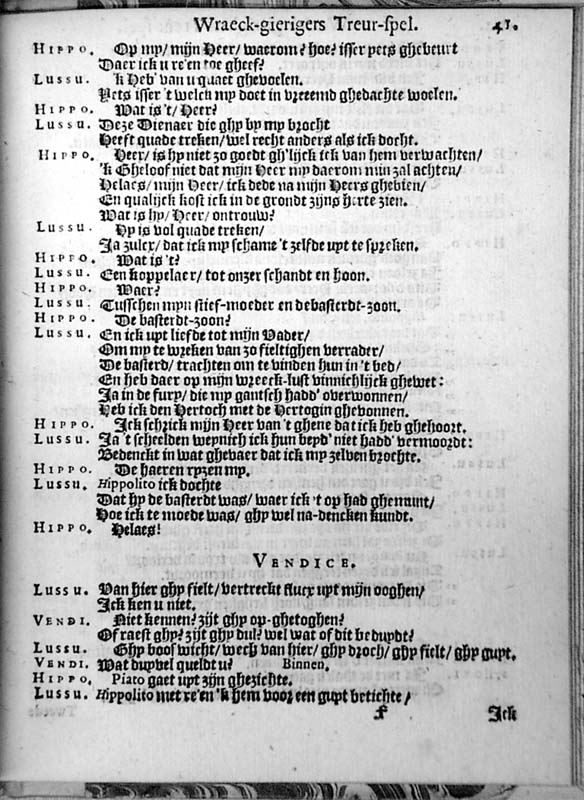 Wraeck-gierigers Treur-spel. 41.
HIPPO. Op my/ mijn Heer/ waerom? hoe? isser yets ghebeurt
Daer ick u re'en toe gheef?
LUSSU. 'k Heb' van u quaet ghevoelen.
Yets isser 't welck my doet in vreemd ghedachte woelen.
HIPPO. Wat is 't/ Heer?
LUSSU. Deze Dienaer die ghy by my brocht
Heeft quade treken/ wel recht anders als ick docht.
HIPPO. Heer/ is hy niet zo goedt gh'lijck ick van hem verwachten/
'k Gheloof niet dat mijn Heer my daerom min zal achten/
Helaes/ mijn Heer/ ick dede na mijn Heers ghebien/
En qualijck kost ick in de grondt zijns herte zien.
Wat is hy/ Heer/ ontrouw?
LUSSU. Hy is vol quade treken/
Ja zulcx/ dat ick my schame 't zelfde uyt te spreken.
HIPPO. Wat is 't?
LUSSU. Een koppelaer/ tot onzer schandt en hoon.
HIPPO. Waer?
LUSSU. Tusschen mijn stief-moeder en de basterdt-zoon.
HIPPO. De basterdt-zoon?
LUSSU. En ick uyt liefde tot mijn Vader/
Om my te wreken van zo fieltighen verrader/
De basterd/ trachten om te vinden hun in 't bed/
En heb daer op mijn wreeck-lust vinnichlijck ghewet:
Ja in de fury/ die my gantsch hadd' overwonnen/
Heb ick den Hertoch met de Hertogin ghevonnen.
HIPPO. Ick schrick mijn Heer van 't ghene dat ick heb ghehoort.
LUSSU. Ja 't scheelden weynich ick hun beyd' niet hadd' vermoordt:
Bedenckt in wat ghevaer dat ick my zelven brochte.
HIPPO. De haeren ryzen my.
LUSSU. Hippolito ick dochte
Dat hy de basterdt was/ waer ick 't op had ghemunt/
Hoe ick te moede was/ ghy wel na-dencken kundt.
HIPPO. Helaes!
VENDICE.
LUSSU. Van hier ghy fielt/ vertreckt flucx uyt mijn ooghen/
Ick ken u niet.
VENDI. Niet kennen? zijt ghy op-ghetoghen?
Of raest ghy? zijt ghy dul? wel wat of dit beduydt?
LUSSU. Ghy boos wicht/ weck van hier/ ghy droch/ ghy fielt/ ghy guyt.
VENDI. Wat duyvel queldt u? Binnen.
HIPPO. Piato gaet uyt zijn ghezichte.
LUSSU. Hippolito met re'en 'k hem voor een guyt betichte/
f Ick